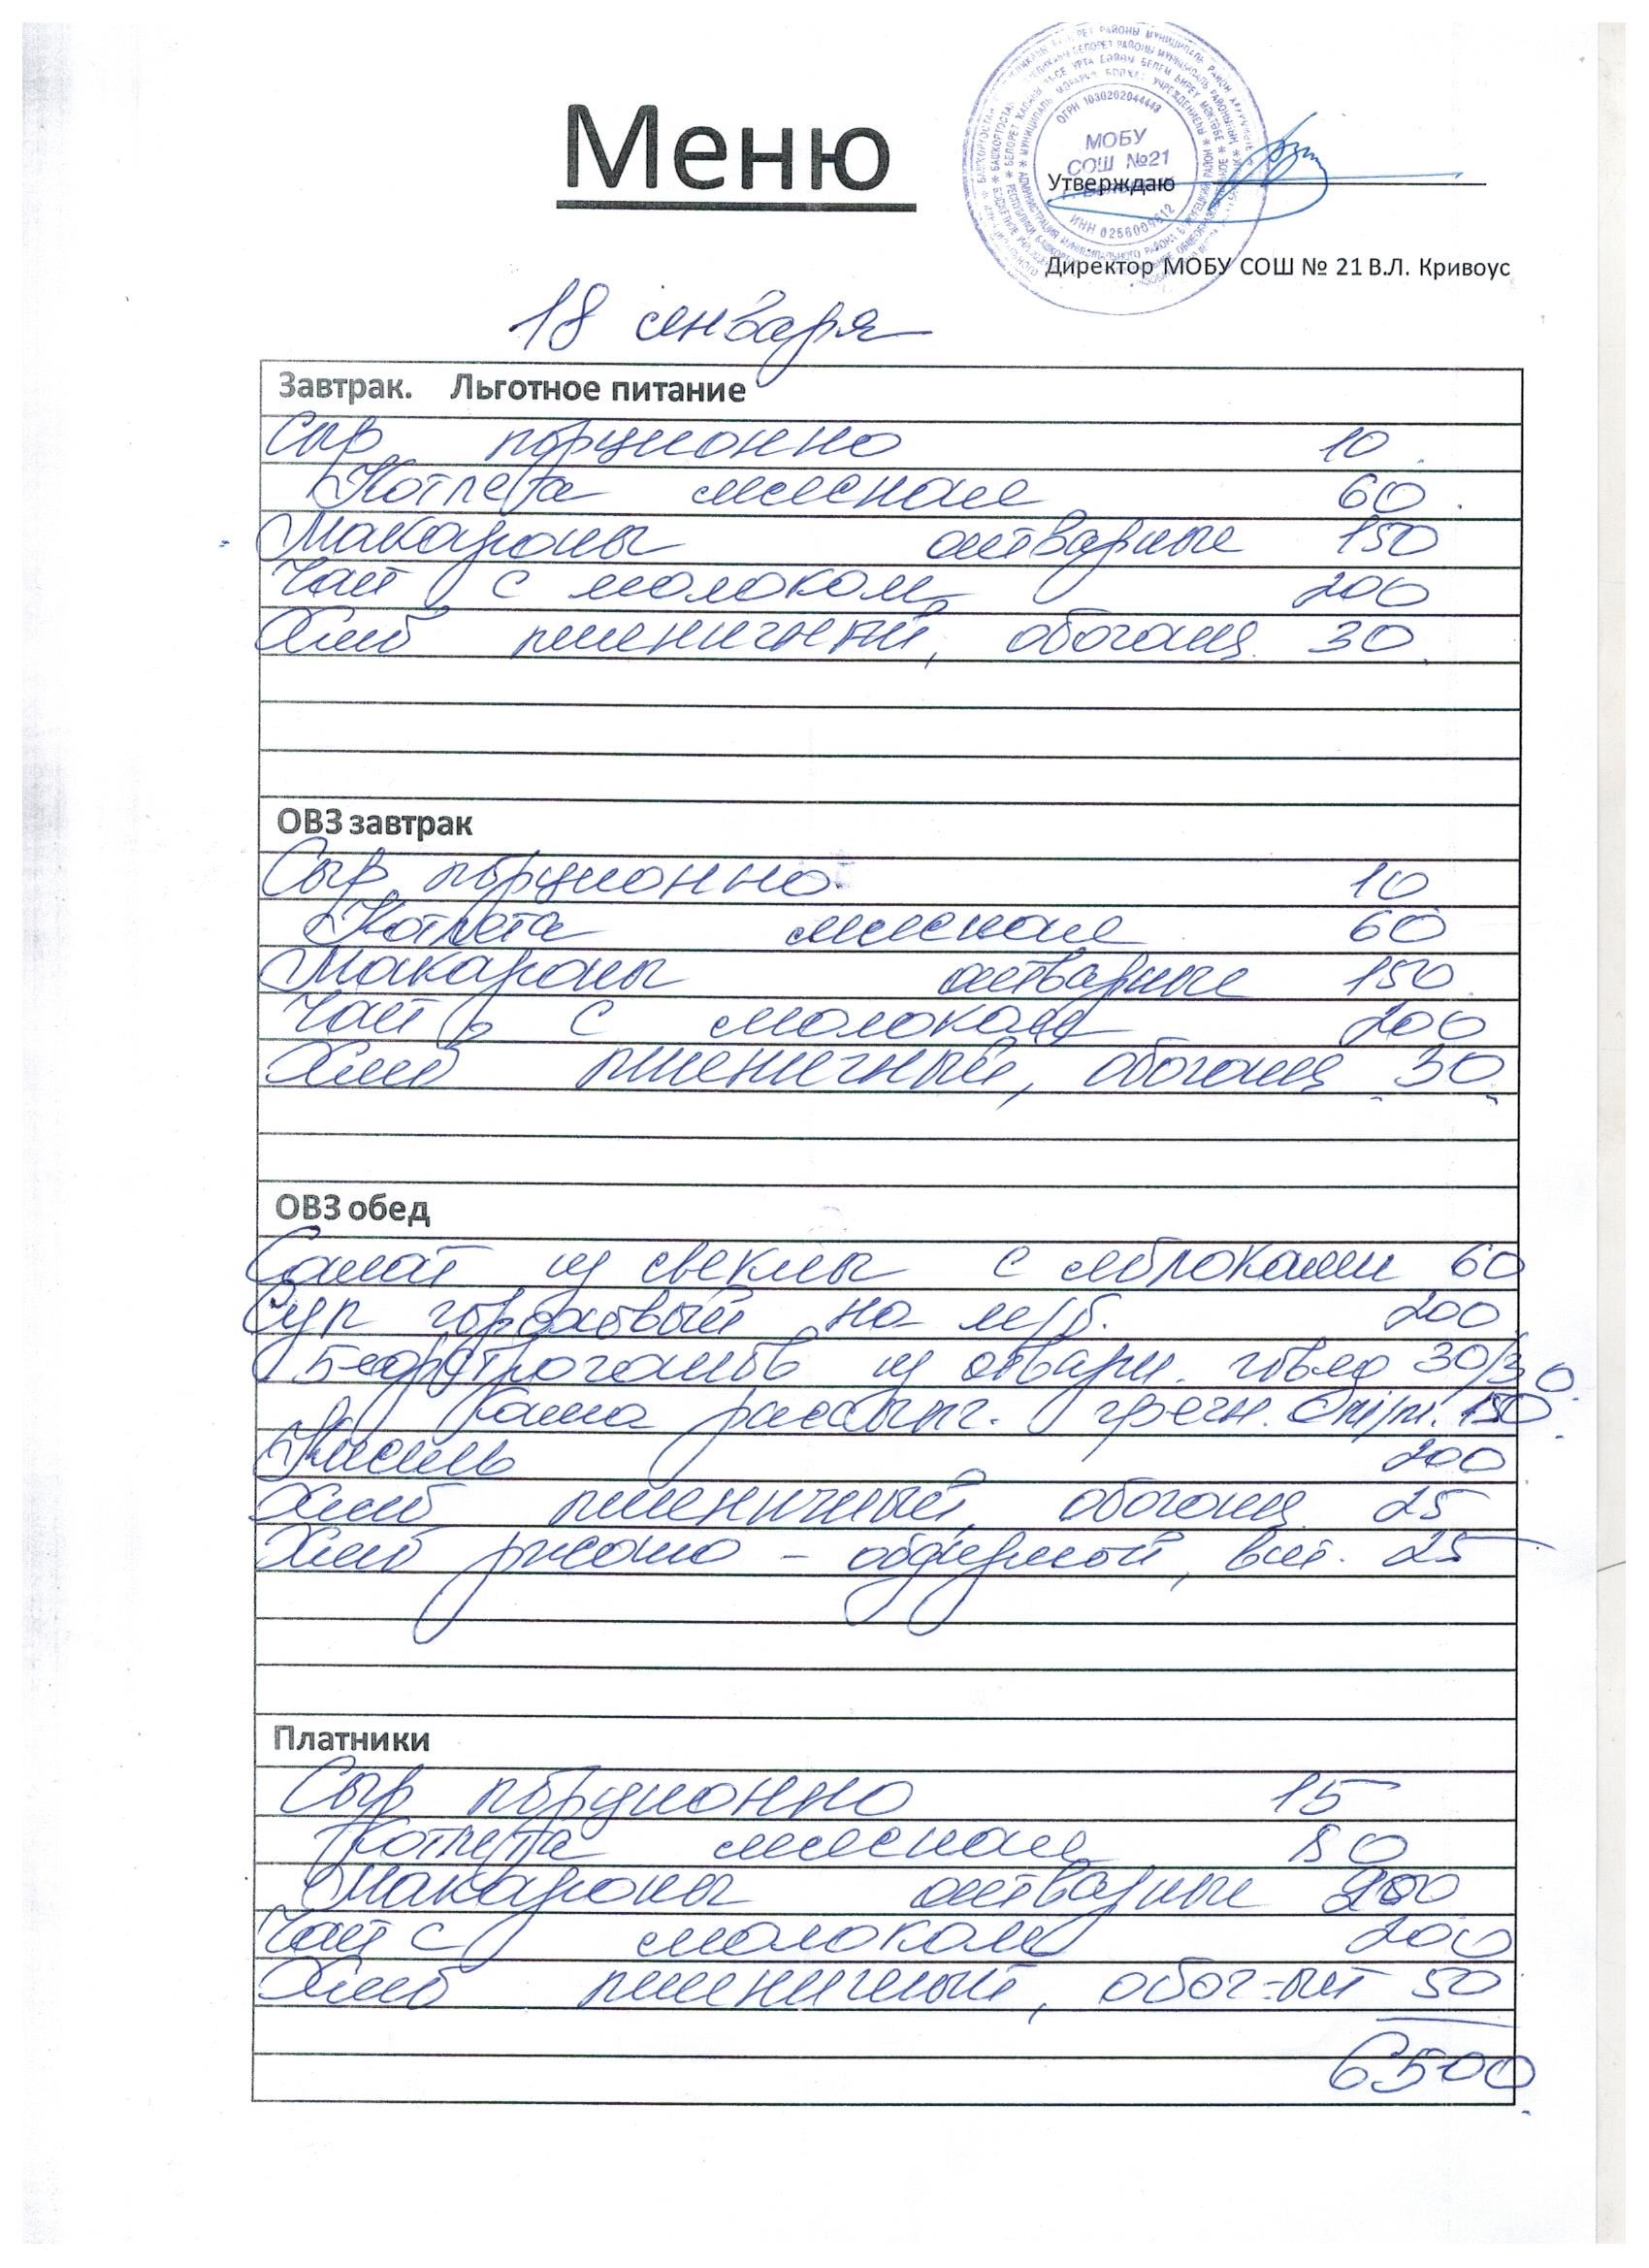 Меню
ОГРН 1030202044448
МОБУ
СОШ №21
Утверждаю
Директор МОБУ СОШ № 21 В.Л. Кривоус
18 января
Завтрак. Льготное питание
Сыр порционно 10
Котлета мясная 60
Макароны отварные 150
Чай с молоком 200
Хлеб пшеничный, обогащ. 30
ОВЗ завтрак
Сыр порционно 10
Котлета мясная 60
Макароны отварные 150
Чай с молоком 200
Хлеб пшеничный, обогащ 30
ОВЗ обед
Салат из свеклы с яблоками 60
Суп гороховый на м/б. 200
Бефстроганов из отварн. говяд 30/30.
Каша рассыпч. гречн. 150
Кисель 200
Хлеб пшеничный, обогащ 25
Хлеб ржано - обдирной, вит. 25
Платники
Сыр порционно 15
Котлета мясная 80
Макароны отварные 200
Чай с молоком 200
Хлеб пшеничный, обог-ый 50
6500